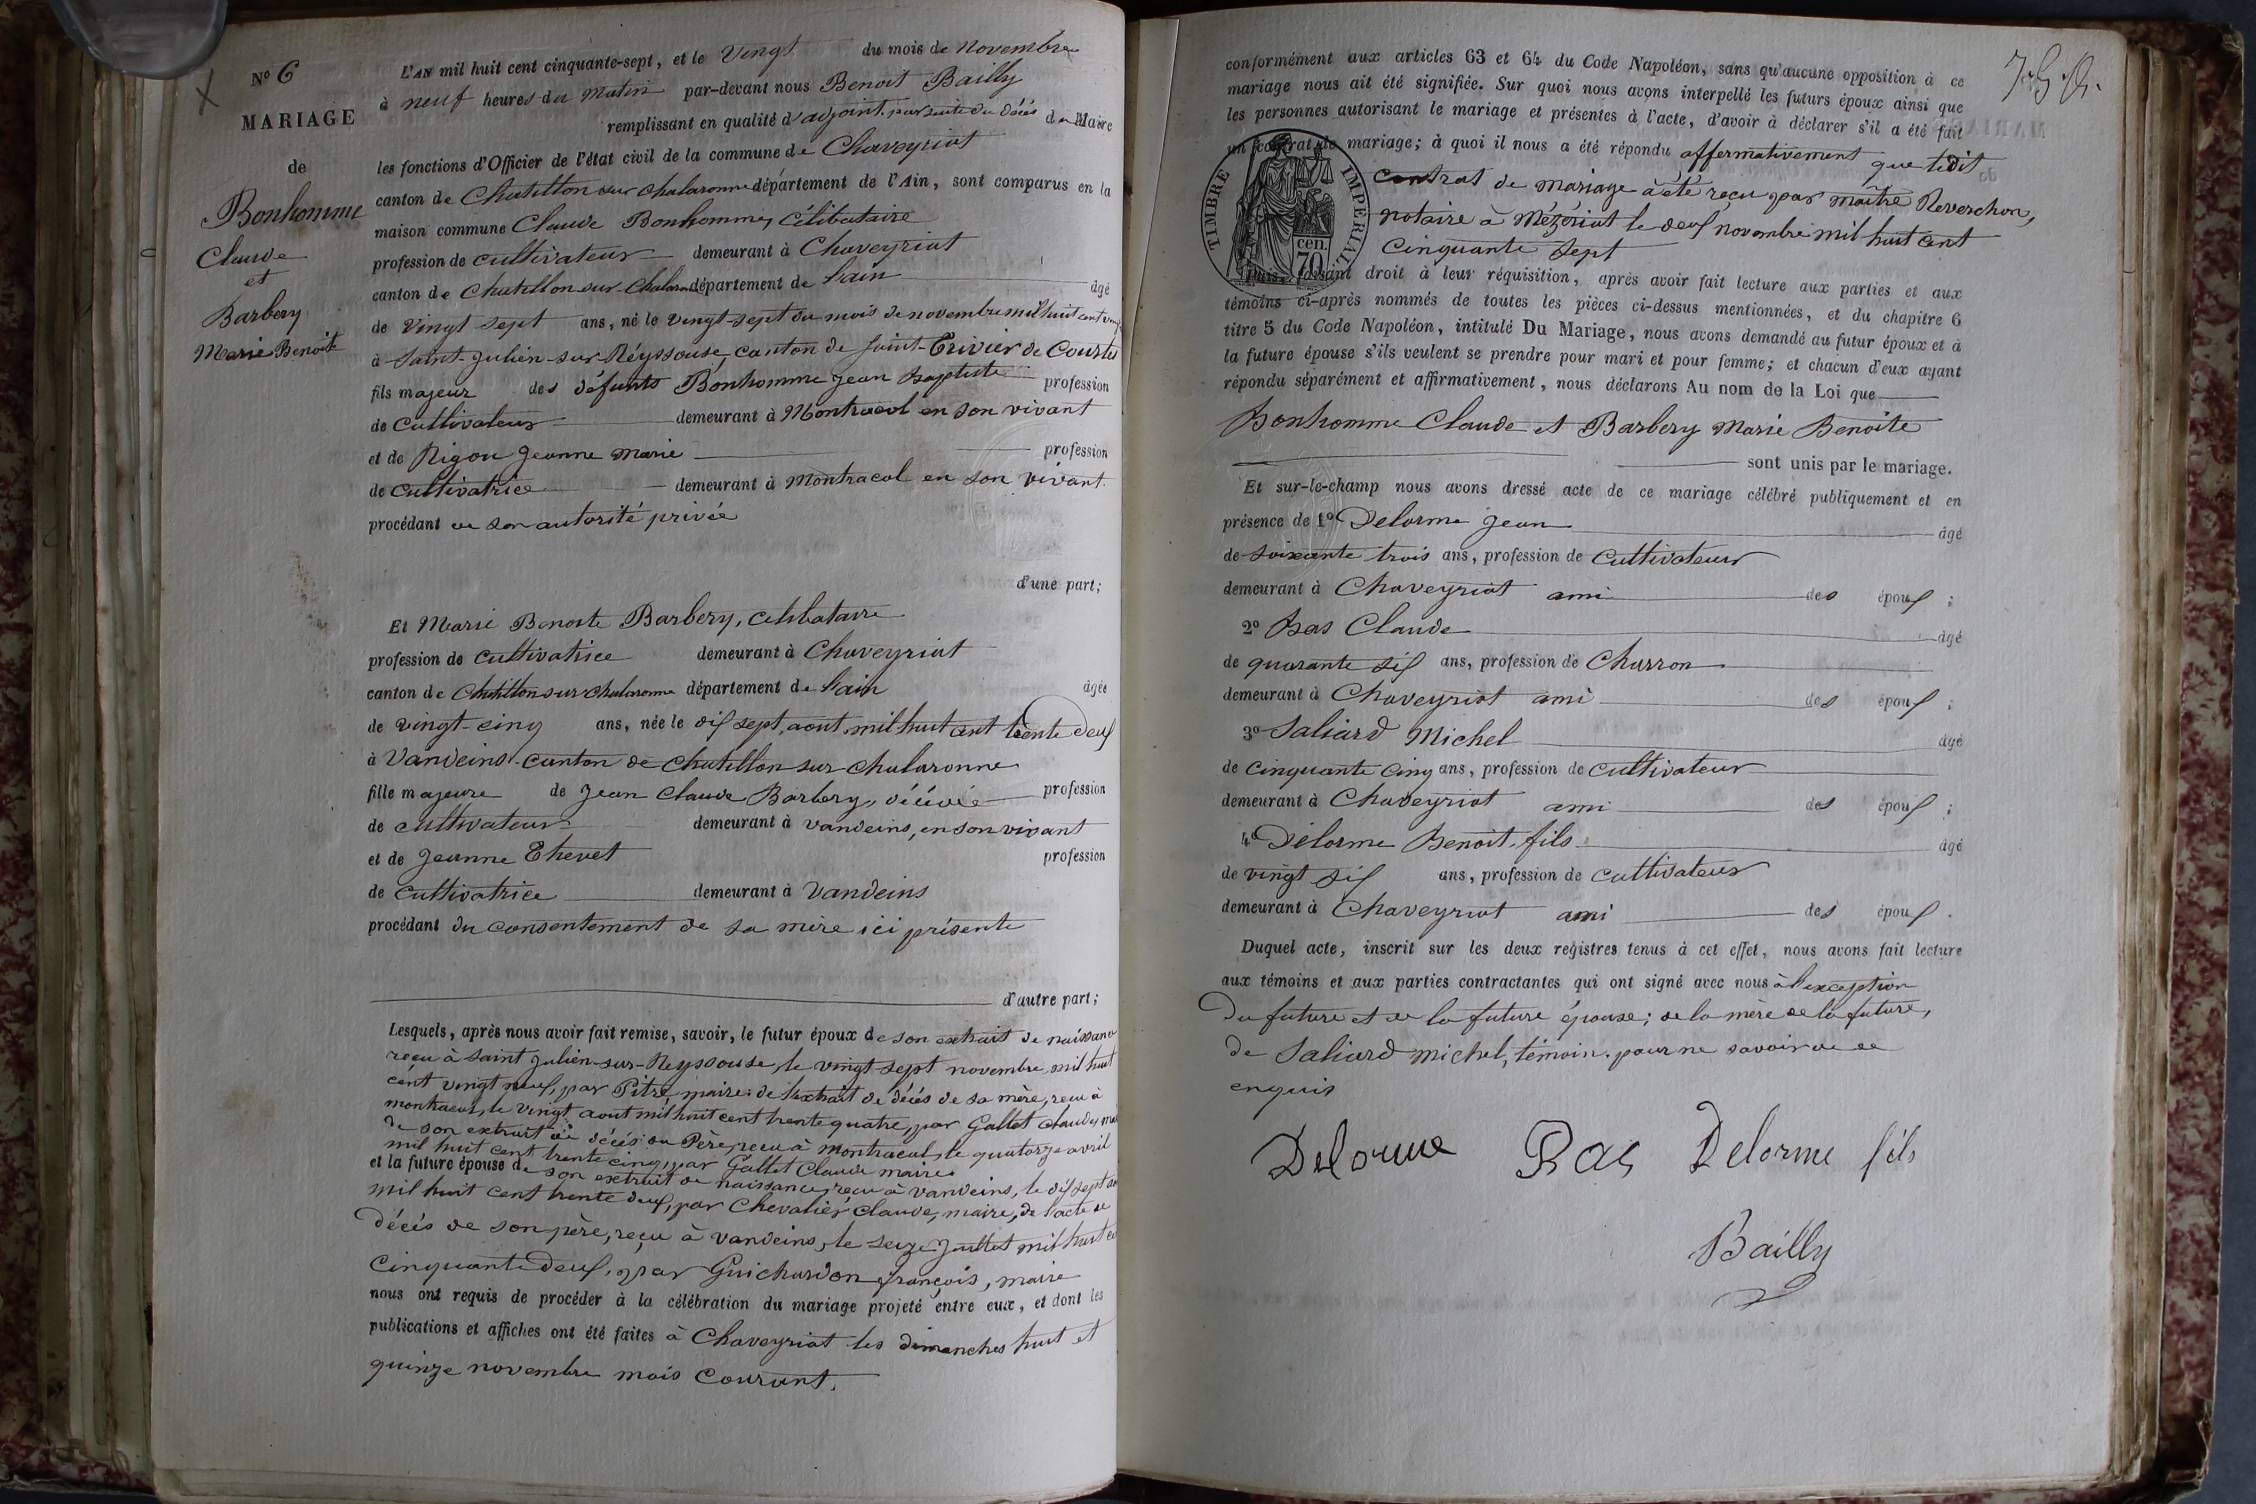 N° 6
MARIAGE
de
Bonhomme
Claude
et
Barbery
Marie Benoite
L'AN mil huit cent cinquante-sept, et le Vingt du mois de novembre
à neuf heures du matin par-devant nous Benoit Bailly
remplissant en qualité d'adjoint par suite du décès du Maire
les fonctions d'Officier de l'état civil de la commune de Chaveyriat
canton de Chatillon sur chalaronne département de l'Ain, sont comparus en la
maison commune Claude Bonhomme, célibataire
profession de cultivateur demeurant à Chaveyriat
canton de Chatillon-sur-Chalaron département de l'ain âgé
de vingt sept ans, né le vingt-sept du mois de novembre mil huit cent
à Saint-Julien-sur-Réyssouse, canton de Saint-Trivier de Courtes
fils majeur des défunts Bonhomme Jean Baptiste profession
de Cultivateur demeurant à Montracol en son vivant
et de Rigou Jeanne Marie profession
de cultivatrice demeurant à Montracol en son vivant
procédant de son autorité privée
d'une part;
Et Marie Benoite Barbery, célibataire
profession de cultivatrice demeurant à Chaveyriat
canton de Chatillon sur Chalaronne département de l'ain âgée
de vingt-cinq ans, née le dix sept aout mil huit cent trente deux
à Vandeins canton de Chatillon sur chalaronne
fille majeure de Jean Claude Barbery, décédé profession
de cultivateur demeurant à vandeins, en son vivant
et de Jeanne Thevet profession
de cultivatrice demeurant à Vandeins
procédant du consentement de sa mère ici présente
d'autre part;
Lesquels, après nous avoir fait remise, savoir, le futur époux de son extrait de naissance
reçu à Saint Julien-sur-Reyssouse, le vingt sept novembre mil huit
cent vingt neuf, par Pitré, maire; de l'extrait de décès de sa mère, reçu à
montracol, le vingt aout mil huit cent trente quatre, par Gallet Claude,
de son extrait de décès du Père, reçu à montracol, le quatorze avril
mil huit cent trente cinq, par Gallet Claude maire
et la future épouse de son extrait de naissance, reçu à vandeins, le dix sept
mil huit cent trente deux, par Chevalier Claude, maire, de l'acte de
décès de son père, reçu à vandeins, le seize Juillet mil huit
cinquante deux, par Guichardon françois, maire
nous ont requis de procéder à la célébration du mariage projeté entre eux, et dont les
publications et affiches ont été faites à Chaveyriat les dimanches huit et
quinze novembre mois courant.
conformément aux articles 63 et 64 du Code Napoléon, sans qu'aucune opposition à ce
mariage nous ait été signifiée. Sur quoi nous avons interpellé les futurs époux ainsi que
les personnes autorisant le mariage et présentes à l'acte, d'avoir à déclarer s'il a été fait
un contrat de mariage; à quoi il nous a été répondu affermativement que ledit
contrat de mariage a été reçu par maître Reverchon,
notaire à Mézériat le deux novembre mil huit cent
cinquante sept
TIMBRE IMPÉRIAL
cen.
70
Puis, faisant droit à leur réquisition, après avoir fait lecture aux parties et aux
témoins ci-après nommés de toutes les pièces ci-dessus mentionnées, et du chapitre 6
titre 5 du Code Napoléon, intitulé Du Mariage, nous avons demandé au futur époux et à
la future épouse s'ils veulent se prendre pour mari et pour femme; et chacun d'eux ayant
répondu séparément et affirmativement, nous déclarons Au nom de la Loi que
Bonhomme Claude et Barbery Marie Benoite
sont unis par le mariage.
Et sur-le-champ nous avons dressé acte de ce mariage célébré publiquement et en
présence de 1° Delorme Jean âgé
de soixante trois ans, profession de cultivateur
demeurant à Chaveyriat ami des époux;
2° Bas Claude âgé
de quarante six ans, profession de Charron
demeurant à Chaveyriat ami des époux;
3° Saliard Michel âgé
de cinquante cinq ans, profession de cultivateur
demeurant à Chaveyriat ami des époux;
4° Delorme Benoit fils âgé
de vingt six ans, profession de cultivateur
demeurant à Chaveyriat ami des époux.
Duquel acte, inscrit sur les deux registres tenus à cet effet, nous avons fait lecture
aux témoins et aux parties contractantes qui ont signé avec nous à l'exception
du future et de la future épouse; de la mère de la future,
de Saliard michel, témoin. pour ne savoir de ce
enquis
Delorme Bas Delorme fils
Bailly